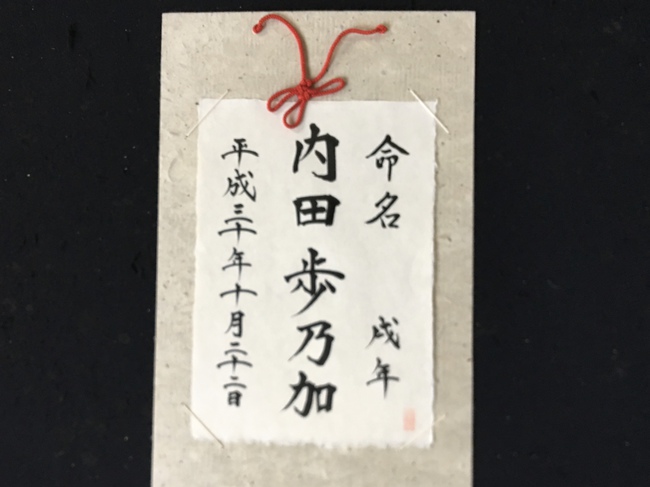 命名 戌年
内田 歩乃加
平成三十年十月二十二日